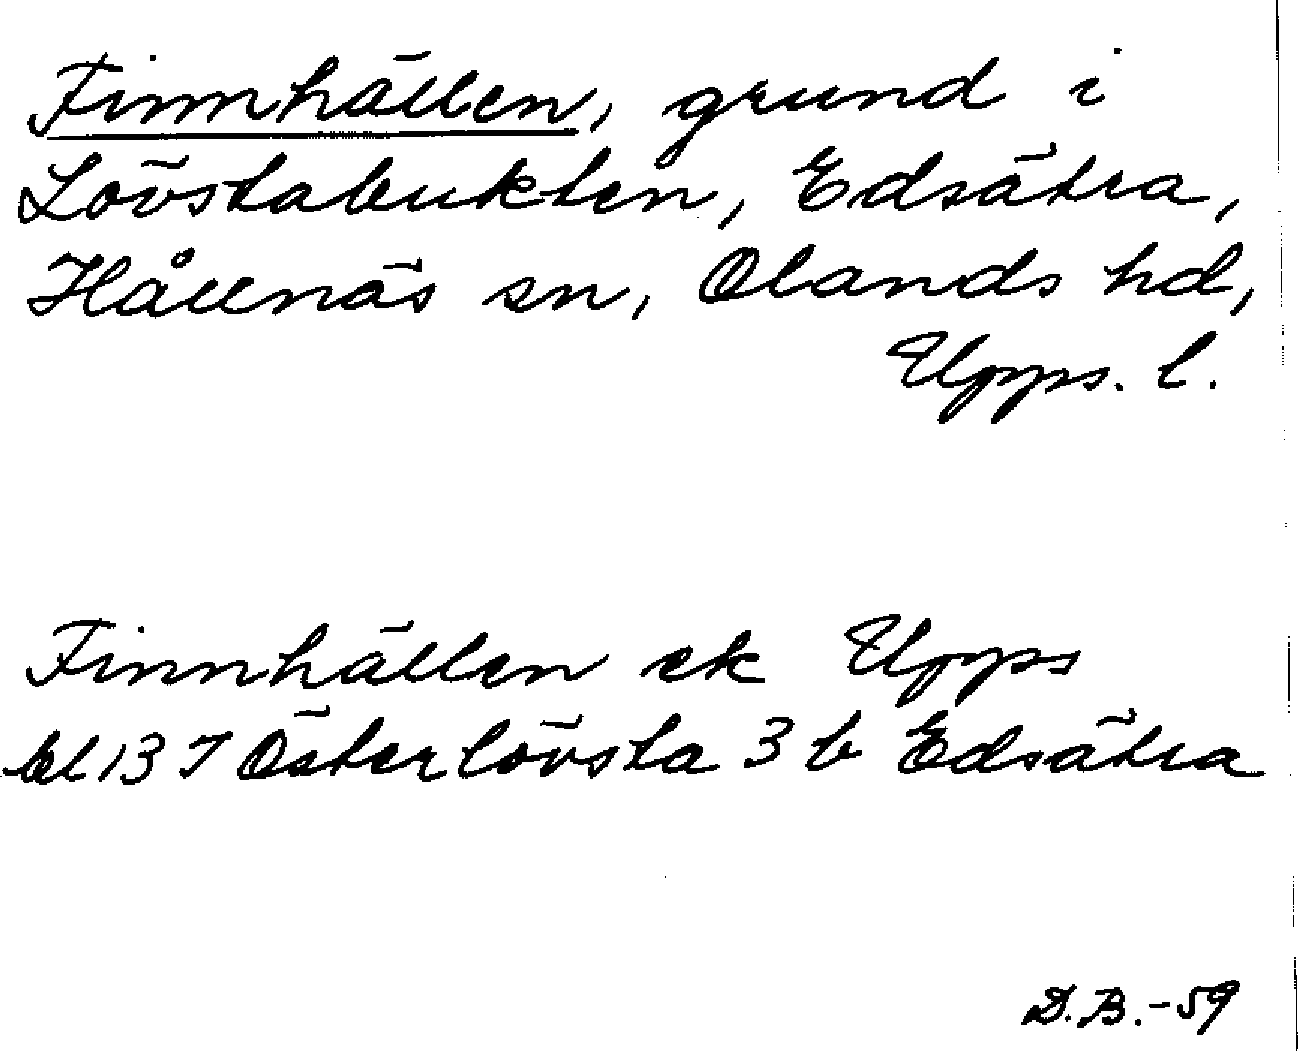 Finnhällen, grund i
Lövstabukten, Edsätra,
Hållnäs sn, Olands hd,
Upps. l.
Finnhällen ek Upps
bl 13 I Österlövsta 3 b Edsätra
D.B.-59